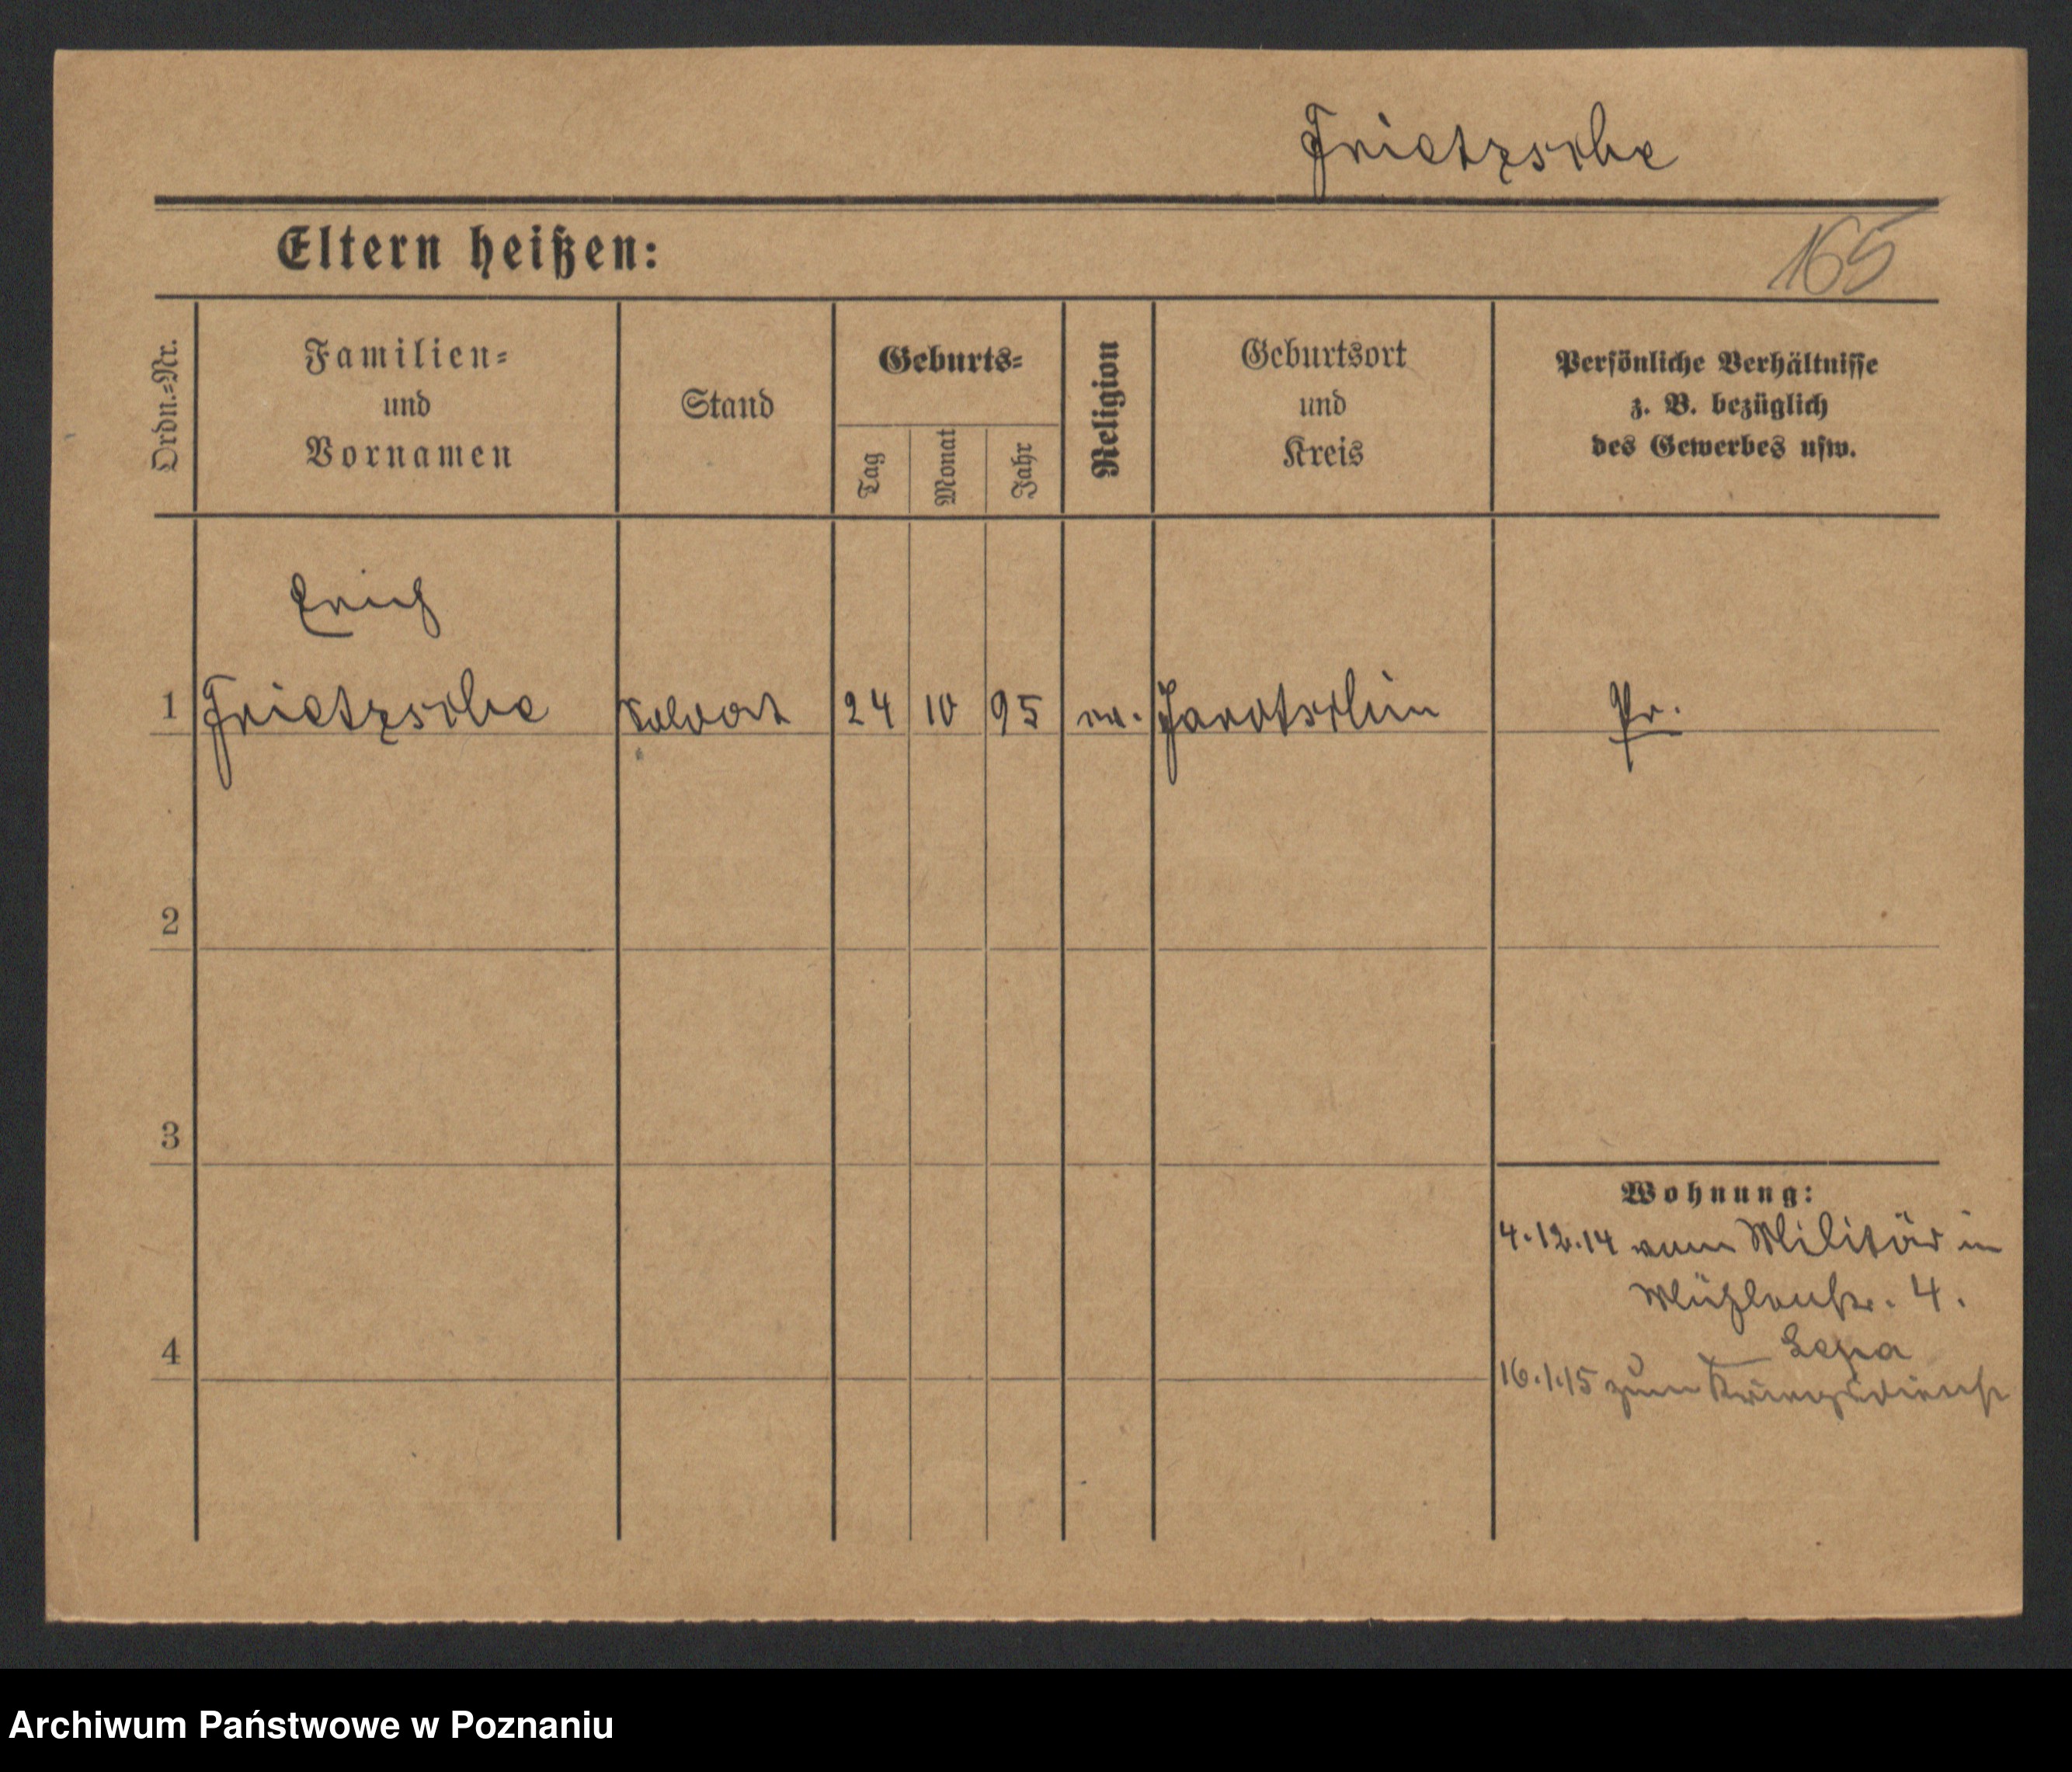 Frietzsche
Eltern heißen:
165
Ordn.=Nr.
Familien=
und
Vornamen
Stand
Geburts=
Tag
Monat
Jahr
Religion
Geburtsort
und
Kreis
Persönliche Verhältnisse
z. B. bezüglich
des Gewerbes usw.
Erich
1 Frietzsche Soldat 24 10 95 ev. Jarotschin Pr.
2
3
4
Wohnung:
4.12.14 vom Militär in
Mühlenstr. 4.
16.1.15 zum Kriegsdienst
Archiwum Państwowe w Poznaniu